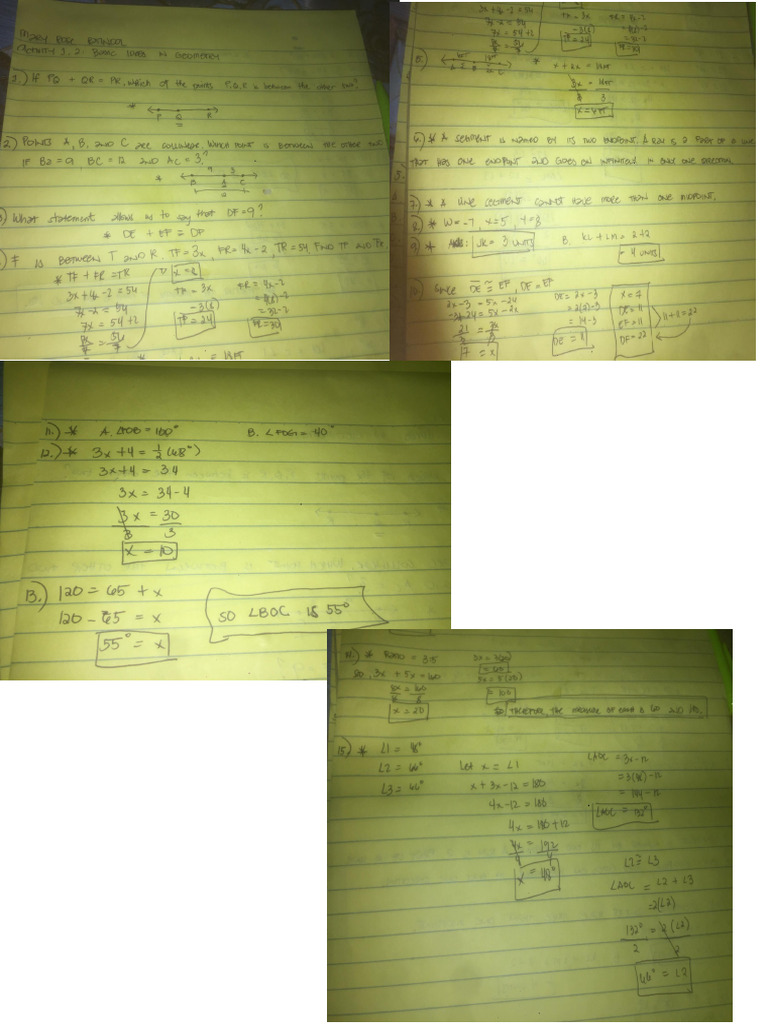 MARY ROSE
ACTIVITY 1.2: BASIC IDEAS IN GEOMETRY
1.) If PQ + QR = PR, which of the points P, Q, R is between the other two?
*
P Q R
2.) POINTS A, B, AND C ARE COLLINEAR. WHICH POINT IS BETWEEN THE OTHER TWO
IF BA = 9 BC = 12 AND AC = 3?
*
B A C
What statement allows us to say that DF = 9?
* DE + EF = DF
F IS BETWEEN T AND R. TF = 3x, FR = 4x - 2, TR = 54. FIND TF AND FR.
* TF + FR = TR
3x + 4x - 2 = 54
7x - 2 = 54
7x = 54 + 2
7x = 56
x = 8
TF = 3x
= 3(8)
TF = 24
FR = 4x - 2
= 4(8) - 2
= 32 - 2
FR = 30
3x + 4x - 2 = 54
7x - 2 = 54
7x = 54 + 2
TF = 3x
= 3(8)
TF = 24
FR = 4x - 2
= 4(8) - 2
= 32 - 2
5.)
*
3
6.) * A SEGMENT IS NAMED BY ITS TWO ENDPOINT. A RAY IS A PART OF A LINE
THAT HAS ONE ENDPOINT AND GOES ON INFINITELY IN ONLY ONE DIRECTION.
7.) * A LINE SEGMENT CANNOT HAVE MORE THAN ONE MIDPOINT.
8.) * W = -7, X = 5, Y = 8
9.) * A. JK = 3 UNITS B. KL + LM = 2 + 2
= 4 UNITS
10.) SINCE DE ≅ EF, DE = EF
2x - 3 = 5x - 24
-3 + 24 = 5x - 2x
21 = 3x
3 3
7 = x
DE = 2x - 3
= 2(7) - 3
= 14 - 3
DE = 11
x = 7
DE = 11
EF = 11
DF = 22
11 + 11 = 22
11.) * A. ∠AOB = 160° B. ∠FOG = 40°
12.) * 3x + 4 = ½ (68°)
3x + 4 = 34
3x = 34 - 4
3x = 30
3 3
x = 10
13.) 120 = 65 + x
120 - 65 = x
55° = x
SO ∠BOC IS 55°
14.) * RATIO = 3:5
SO, 3x + 5x = 160
8x = 160
8 8
x = 20
3x = 3(20)
= 60
5x = 5(20)
= 100
SO THEREFORE, THE MEASURE OF EACH IS 60 AND 100.
15.) * ∠1 = 48°
∠2 = 66°
∠3 = 66°
Let x = ∠1
x + 3x - 12 = 180
4x - 12 = 180
4x = 180 + 12
4x = 192
4 4
x = 48°
∠AOC = 3x - 12
= 3(48) - 12
= 144 - 12
∠AOC = 132°
∠2 ≅ ∠3
∠AOC = ∠2 + ∠3
= 2(∠2)
132° = 2(∠2)
2 2
66° = ∠2